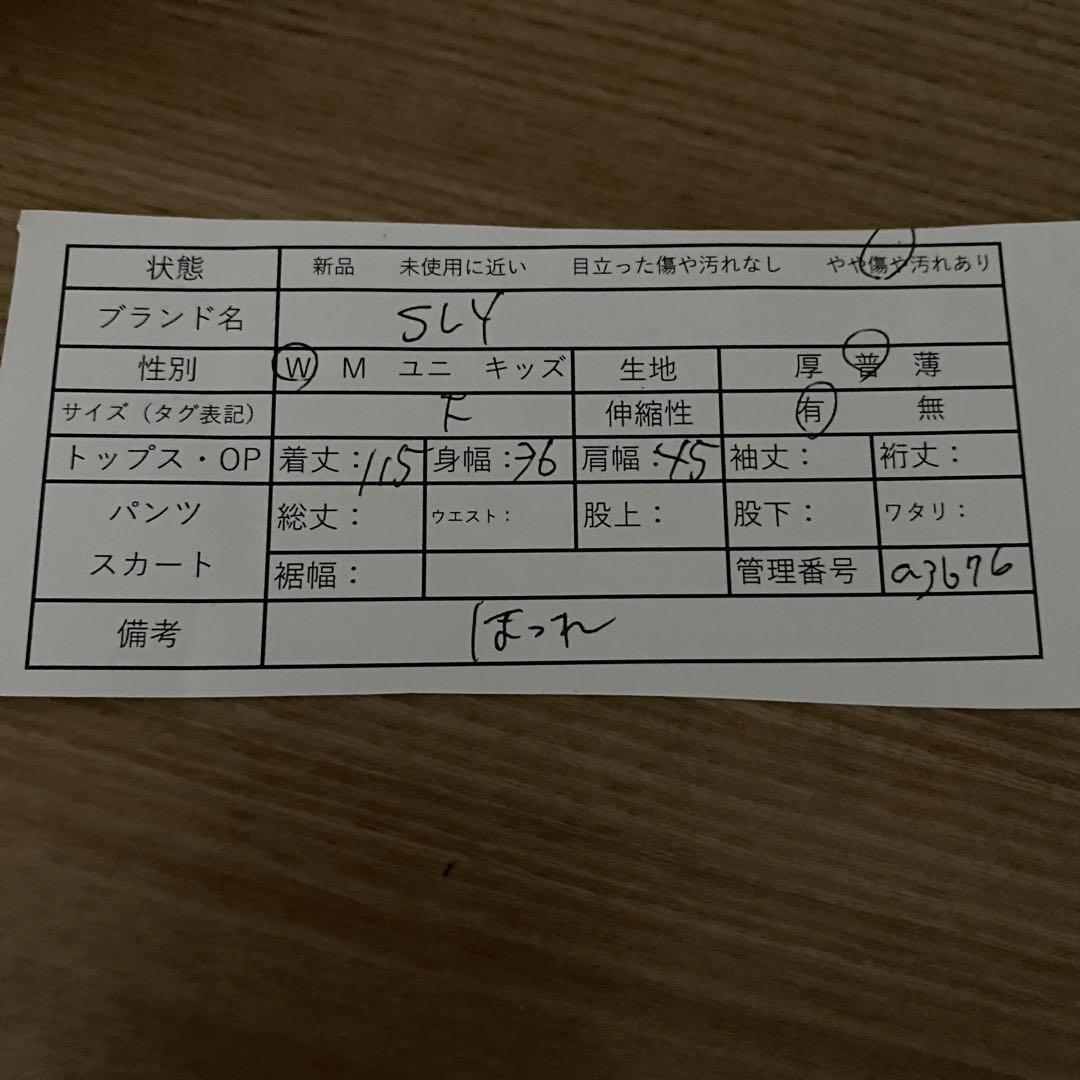 状態 新品 未使用に近い 目立った傷や汚れなし やや傷や汚れあり
ブランド名 SLY
性別 W M ユニ キッズ 生地 厚 普 薄
サイズ（タグ表記） F 伸縮性 有 無
トップス・OP 着丈：115 身幅：36 肩幅：45 袖丈： 裄丈：
パンツ 総丈： ウエスト： 股上： 股下： ワタリ：
スカート 裾幅： 管理番号 a3676
備考 ほつれ